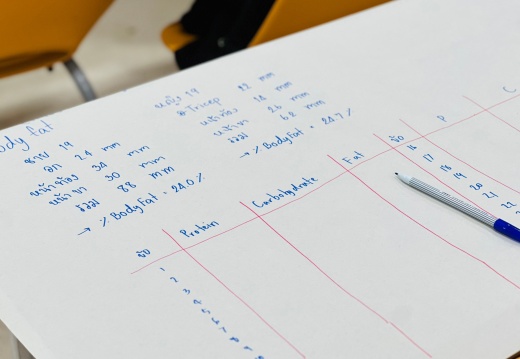 ody fat
ชาย 19
อก 24 mm
หน้าท้อง 34 mm
หน้าขา 30 mm
รวม 88 mm
→ % Body Fat = 24.0 %
หญิง 19
Tricep 22 mm
หน้าท้อง 18 mm
หน้าขา 26 mm
รวม 68 mm
→ % Body Fat = 24.7 %
ชื่อ Protein Carbohydrate Fat
1
2
3
4
5
6
7
8
9
10
ชื่อ P C
16
17
18
19
20
21
22